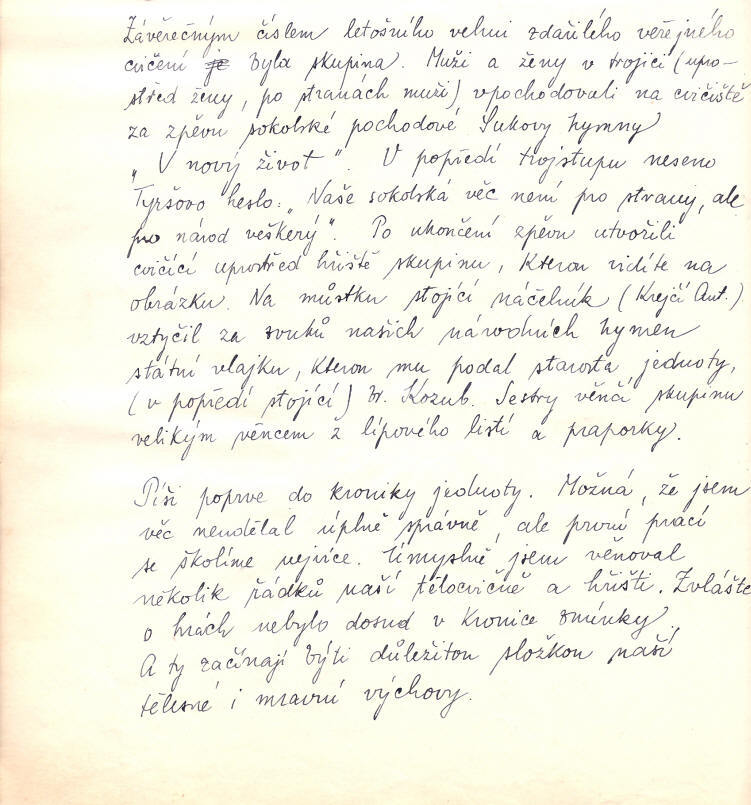 Závěrečným číslem letošního velmi zdařilého veřejného
cvičení je byla skupina. Muži a ženy v trojici (upro-
střed ženy, po stranách muži) vpochodovali na cvičiště
za zpěvu sokolské pochodové Sukovy hymny
„V nový život“. V popředí trojstupu neseno
Tyršovo heslo: „Naše sokolská věc není pro strany, ale
pro národ veškerý“. Po ukončení zpěvu utvořili
cvičící uprostřed hřiště skupinu, kterou vidíte na
obrázku. Na můstku stojící náčelník (Krejčí Ant.)
vztyčil za zvuků našich národních hymen
státní vlajku, kterou mu podal starosta jednoty,
(v popředí stojící) br. Kozub. Sestry věnčí skupinu
velikým věncem z lipového listí a praporky.
Píši poprve do kroniky jednoty. Možná, že jsem
věc neudělal úplně správně, ale první prací
se školíme nejvíce. Úmyslně jsem věnoval
několik řádků naší tělocvičně a hřišti. Zvláště
o hrách nebylo dosud v kronice zmínky.
A ty začínají býti důležitou složkou naší
tělesné i mravní výchovy.